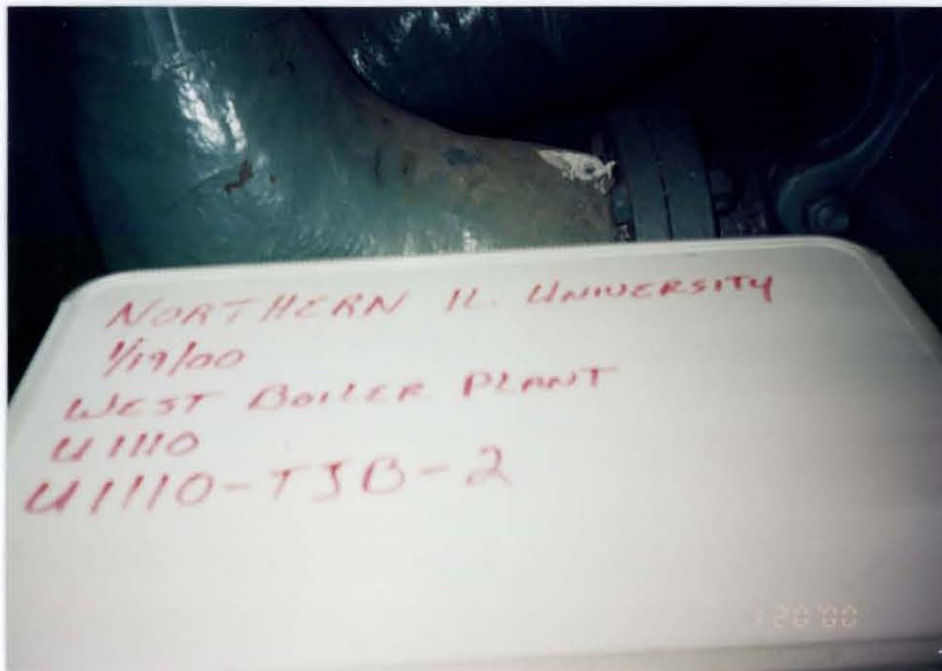 NORTHERN IL. UNIVERSITY
1/19/00
WEST BOILER PLANT
U1110
U1110-TJB-2
1 20 '00